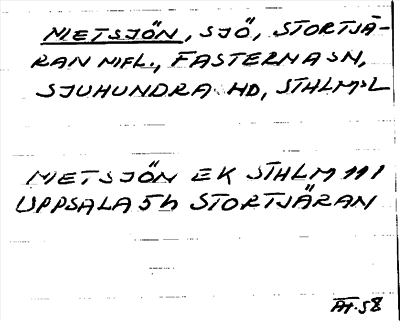 METSJÖN, SJÖ, STORTJÄ-
RAN MFL., FASTERNA SN,
SJUHUNDRA HD, STHLMSL
METSJÖN EK STHLM 111
UPPSALA 5h STORTJÄRAN
PH.58